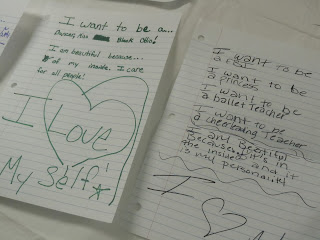 I want to be a...
I am beautiful because...
of my inside. I care
for all people!
I Love
My Self!
I want to be
I want to be
a princess
I want to be
a ballet teacher
I want to be
a cheerleading teacher
I am
because it's in
the inside and it
is my personality
I